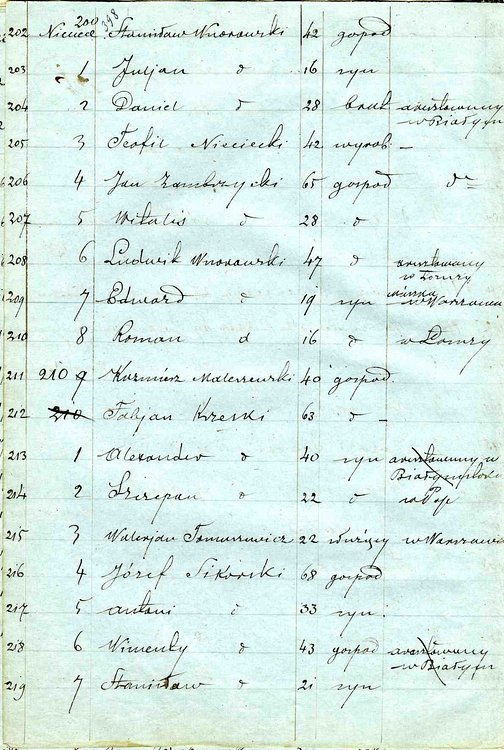 200 398
202 Niciece Stanisław Wnorowski 42 gospod
203 1 Juljan d 16 syn
204 2 Daniel d 28 brat aresztowany
w Białym
205 3 Teofil Nieciecki 42 wyrob. –
206 4 Jan Zambrzycki 65 gospod do
207 5 Witalis d 28 d
208 6 Ludwik Wnorowski 47 d aresztowany
w Łomży
209 7 Edward d 19 syn w Warszawie
210 8 Roman d 16 d w Łomży
211 210 9 Kazimierz Maleszewski 40 gospod.
212 210 Fabjan Krzeski 63 d –
213 1 Alexander d 40 syn aresztowany w
Białymstoku
214 2 Szczepan d 22 d
215 3 Walerjan Tomaszewicz 22 służący w Warszawie
216 4 Józef Sikorski 68 gospod
217 5 Antoni d 33 syn.
218 6 Wincenty d 43 gospod aresztowany
w Białym
219 7 Stanisław d 21 syn